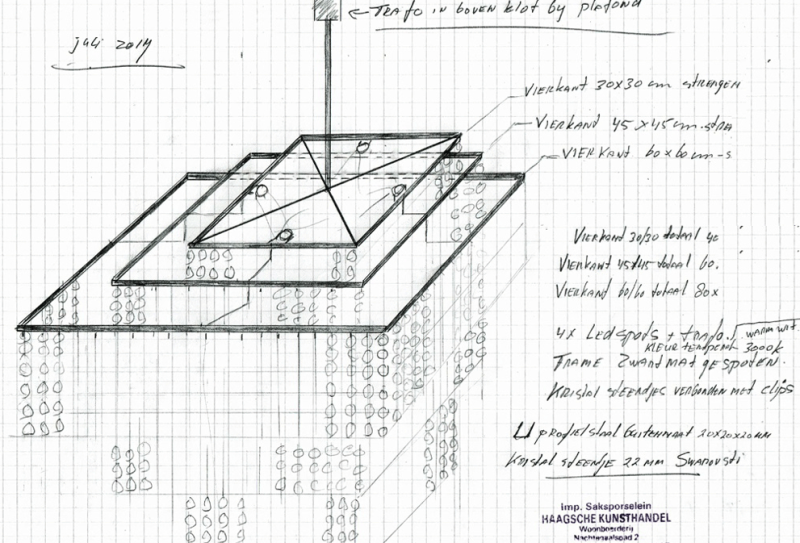 ← Trafo in boven klot by plafond
juli 2014
Vierkant 30x30 cm strengen
Vierkand 45x45 cm-stre
Vierkant 60x60 cm-s
Vierkand 30/30 totaal 40
Vierkant 45x45 totaal 60.
Vierkand 60/60 totaal 80x
4x Ledspots + trafo. warm wit
kleur 3000k
Frame zwart mat gespoten.
Kristal steentjes verbonden met clips
U profielstaal buitenmaat 20x20x20mm
Kristal steentje 22 mm Swarovski
Imp. Saksporselein
HAAGSCHE KUNSTHANDEL
Woonboerderij
Nachtegaalpad 2